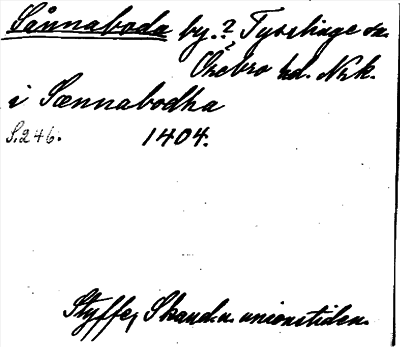 Sånnaboda by.? Tysslinge sn.
Örebro hd. Nrk.
i Sænnabodha
S.246. 1404.
Styffe, Skand. u. unionstiden.